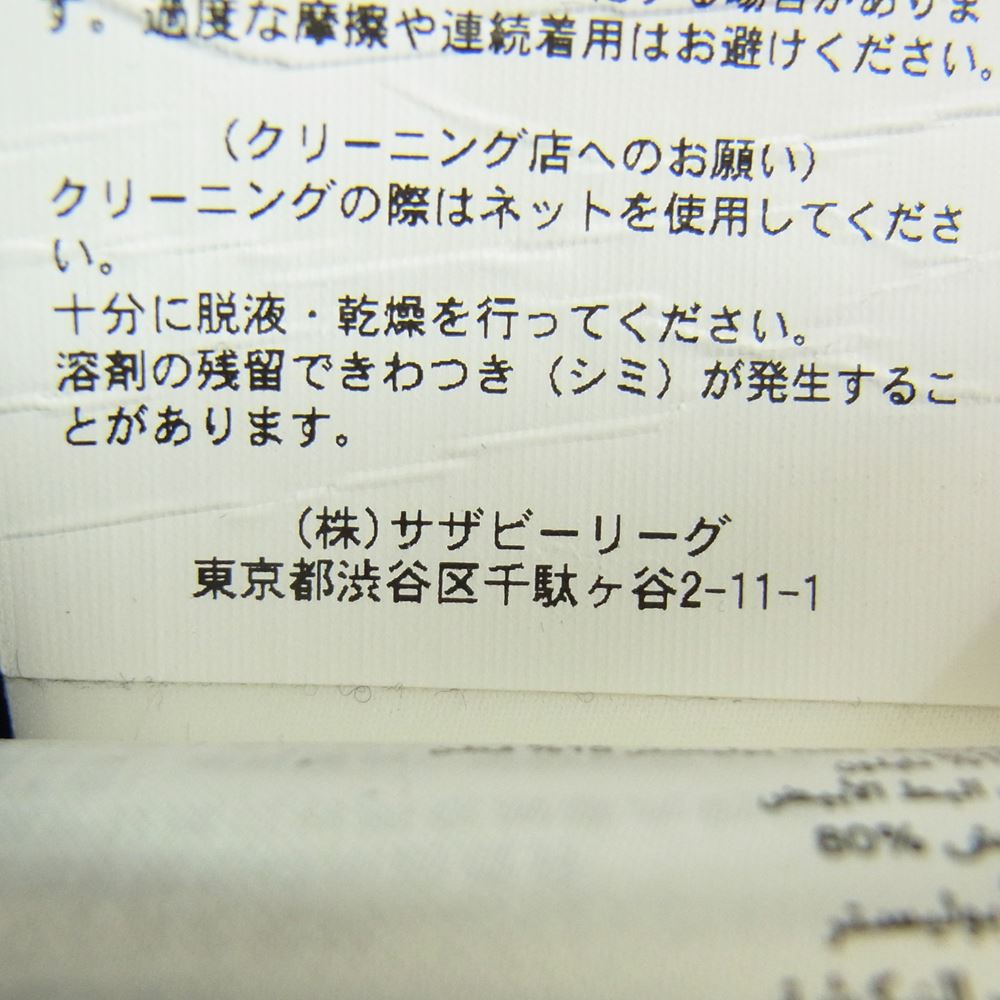 場合がありま
す。過度な摩擦や連続着用はお避けください。
(クリーニング店へのお願い)
クリーニングの際はネットを使用してくださ
い。
十分に脱液・乾燥を行ってください。
溶剤の残留できわつき(シミ)が発生するこ
とがあります。
(株)サザビーリーグ
東京都渋谷区千駄ヶ谷2-11-1
80%